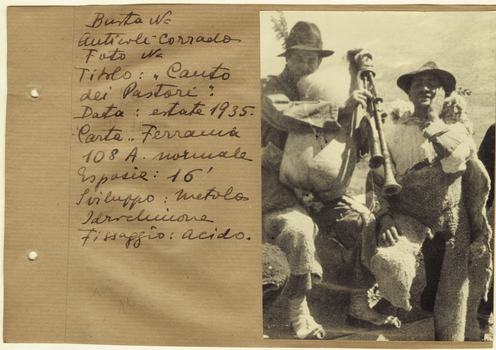 Busta No
Anticoli Corrado
Foto No
Titolo: "Canto
dei Pastori".
Data: estate 1935.
Carta.. Ferrania
108 A. normale
Esposiz: 16'
Sviluppo: Metolo
Idrochinone
Fissaggio: acido.